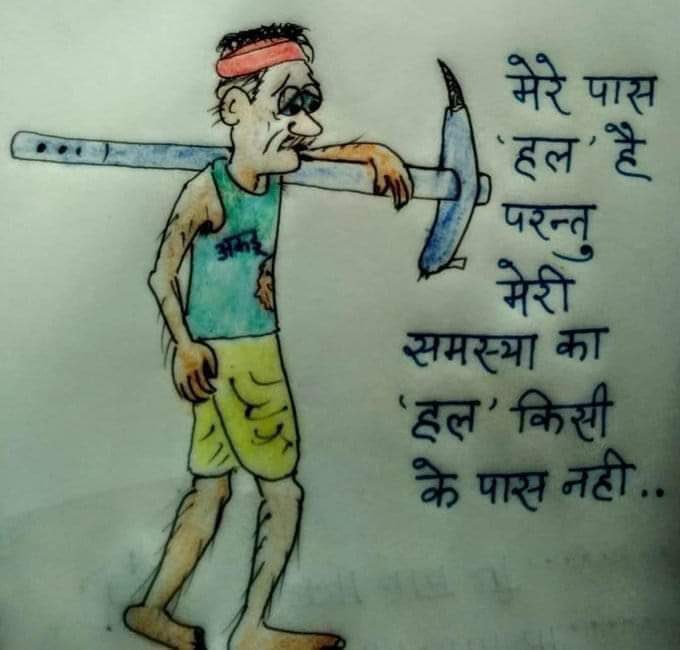 मेरे पास
'हल' है
परन्तु
मेरी
समस्या का
'हल' किसी
के पास नही..